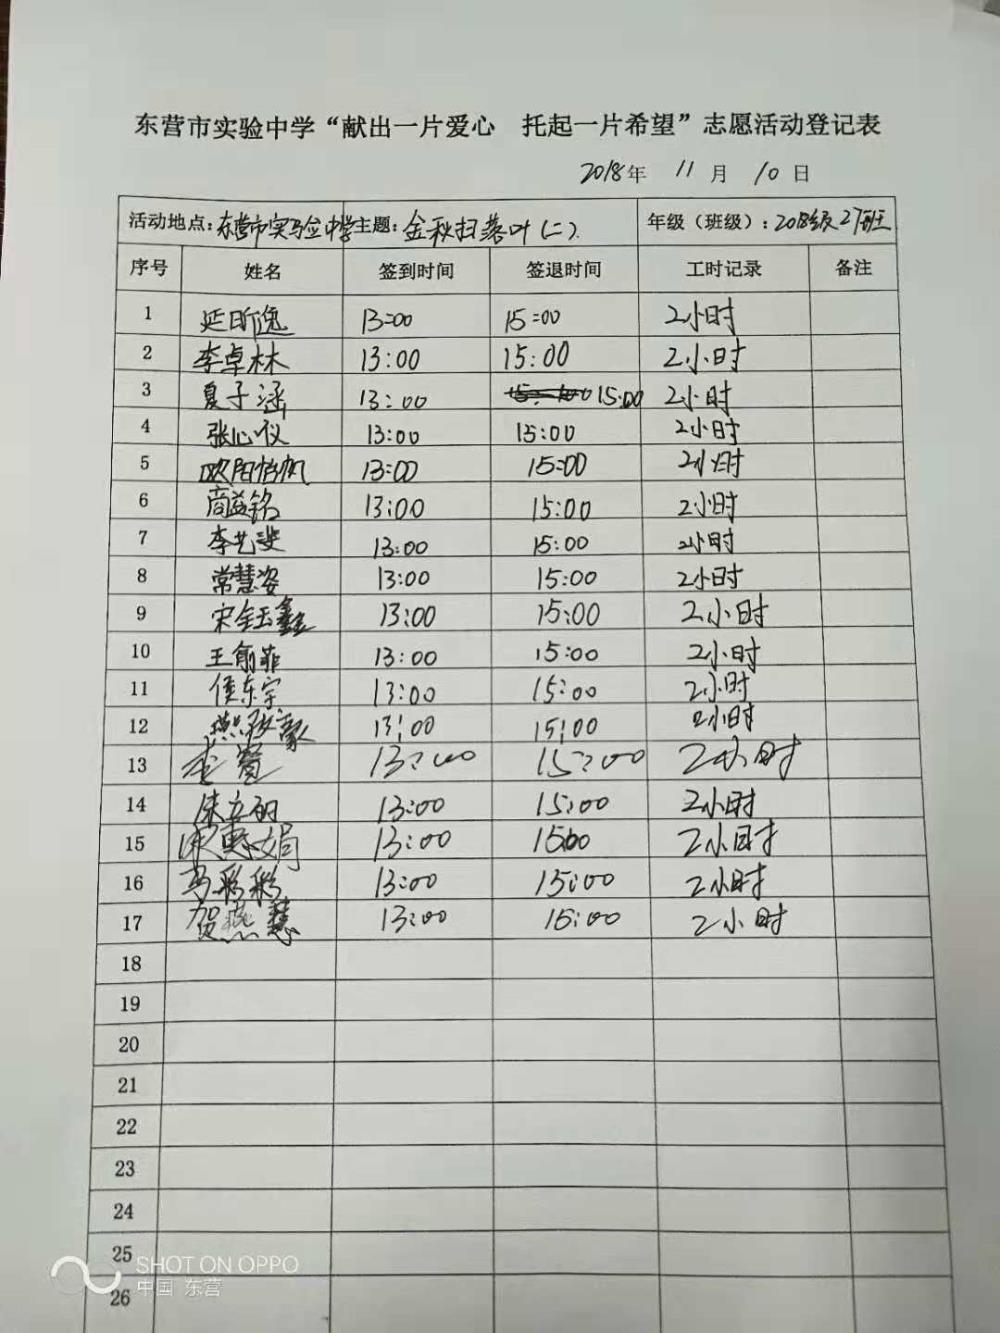 东营市实验中学“献出一片爱心　托起一片希望”志愿活动登记表
2018年 11 月 10 日
活动地点：东营市实验中学 主题：金秋扫落叶(二)． 年级（班级）：2018级27班
序号 姓名 签到时间 签退时间 工时记录 备注
1 延昕逸 13:00 15:00 2小时
2 李卓林 13:00 15:00 2小时
3 夏子涵 13:00 15:00 2小时
4 张心仪 13:00 15:00 2小时
5 欧阳怡帆 13:00 15:00 2小时
6 商益铭 13:00 15:00 2小时
7 李艺斐 13:00 15:00 2小时
8 常慧姿 13:00 15:00 2小时
9 宋金玉鑫 13:00 15:00 2小时
10 王俞菲 13:00 15:00 2小时
11 侯东宇 13:00 15:00 2小时
12 13:00 15:00 2小时
13 13:00 15:00 2小时
14 13:00 15:00 2小时
15 13:00 15:00 2小时
16 马彩彩 13:00 15:00 2小时
17 贺燕慧 13:00 15:00 2小时
18
19
20
21
22
23
24
25
26
SHOT ON OPPO
中国 东营